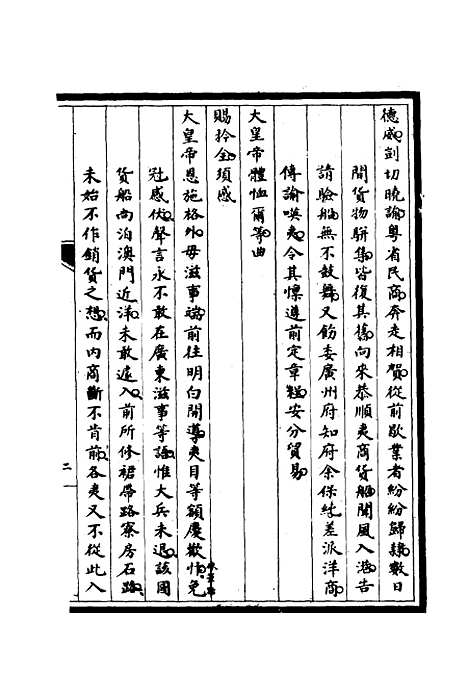 德威剴切曉諭粵省民商奔走相賀從前歇業者紛紛歸隸數日
間貨物駢集皆復其舊向來恭順夷商貨船聞風入港告
請驗船無不鼓舞又飭委廣州府知府余保純差派洋商
傳諭㖞夷令其懍遵前定章程安分貿易
大皇帝體恤爾等曲
賜矜全頃感
大皇帝恩施格外毋滋事端前往明白開導夷目等額慶歡忭免
冠感伏聲言永不敢在廣東滋事等語惟大兵未退該國
貨船尚泊澳門近洋未敢遽入前所修裙帶路寮房石路
未始不作銷貨之想而內商斷不肯前各夷又不從此入
二